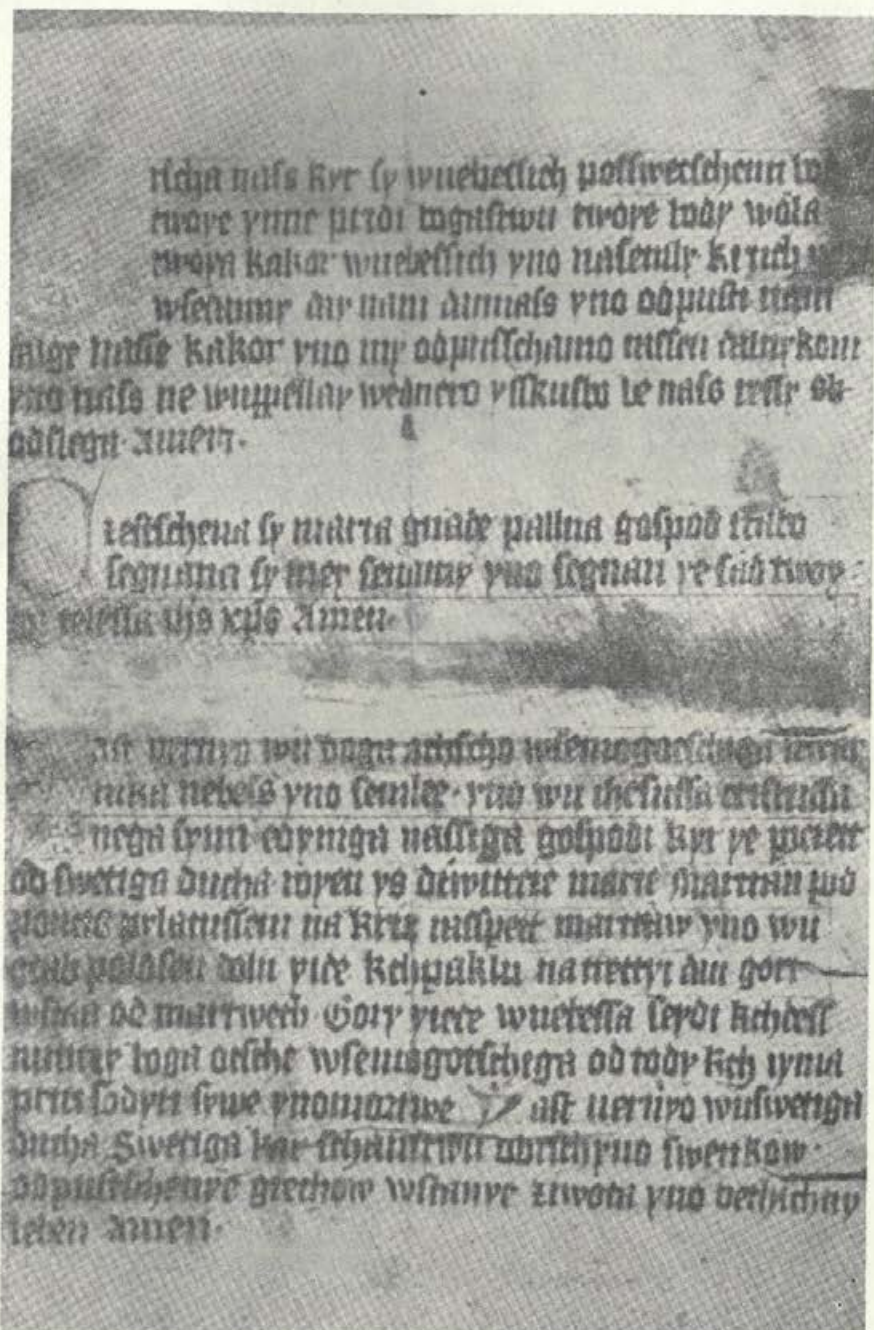 tscha nass kyr sy wnebessich posswetschenu bo
twoye ymme pridi bogastwu twoye body wola
twoya kakor wnebessich yno nasemly kruch
wsedanny day nam dannass yno odpusti nam
dalge nasse kakor yno my odpusschamo nassen dalnykom
yno nass ne wuppellay wednero ysskusbo le nass resse od
odslega amen.
zestschena sy maria gnade pallna gospod stabo
segnana sy mey senamy yno segnan ye sad twoy
telessa ihs xps Amen
ast veruyo wu boga otscho wsemogotschiga stwar
nika nebess yno semlee yno wu ihesussa cristussa
nega synu edyniga nassiga gospodi kyr ye poczett
od swetiga ducha royen ys dewittcie marie martran pod
poncio pylatussem na kriz rasspett martraw yno wu
grob polosen dolu yide kchpaklu na trettyi dan gori
wstaa od martwech Gory yiece wnebessa seydi kchdess
nittzy boga otsche wsemogotschiga od tody kch yma
priti sodyti sywe ynomartwe Iast veruyo wuswetiga
ducha Swetiga kar schanstwu obrith yno swenkow
odpustschenye grechow wstanye ziwota yno vethschny
leben amen.